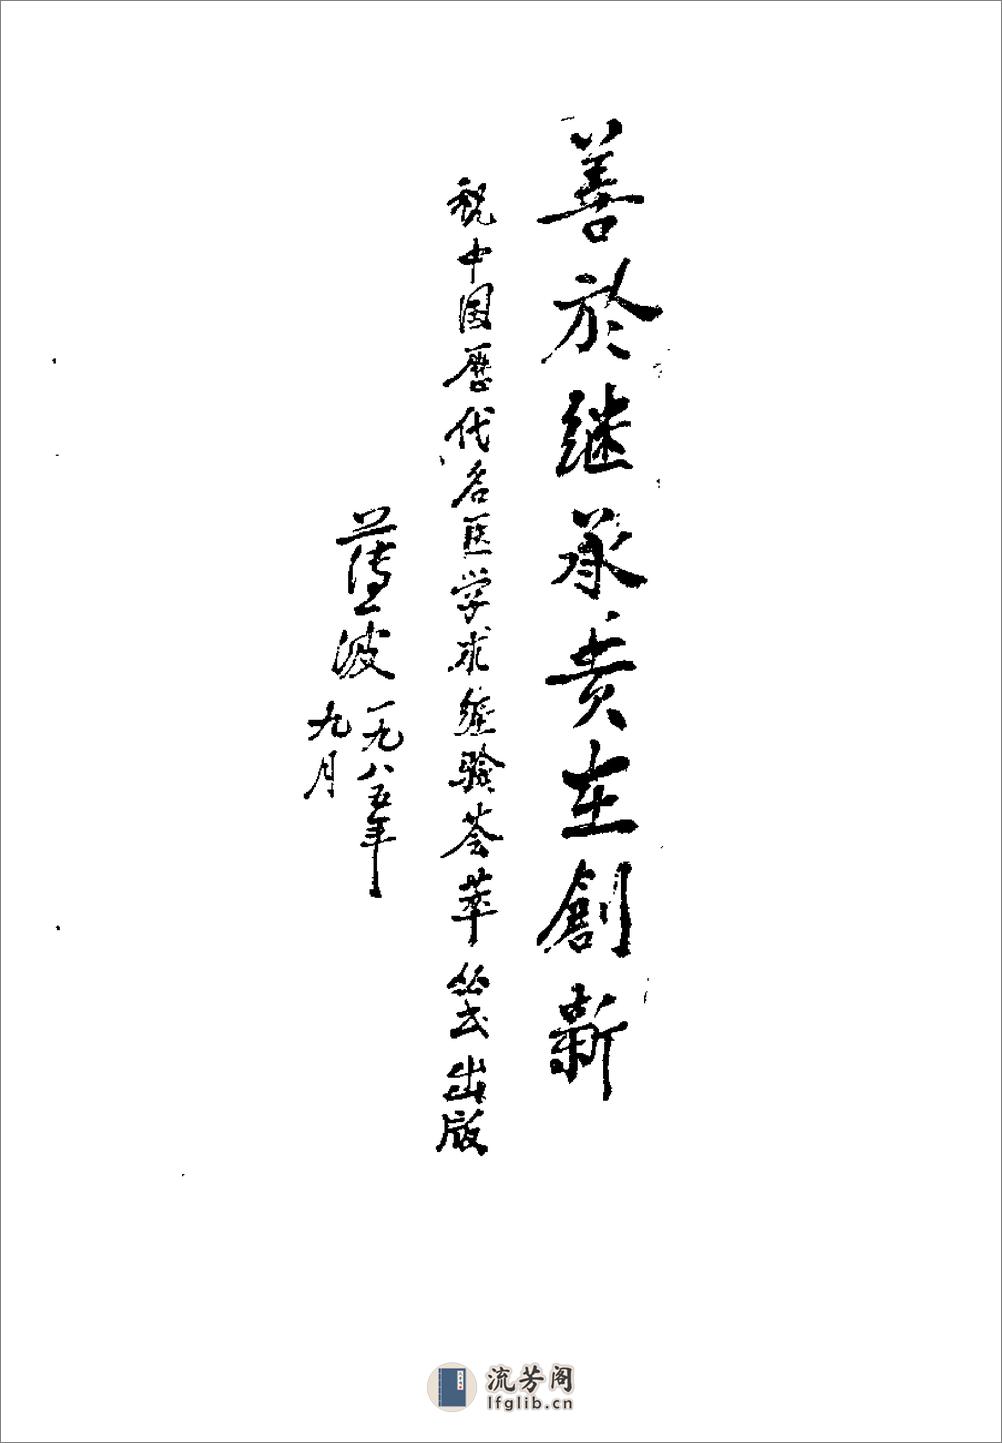 善於继承贵在創新
祝中国歷代名医学术经验荟萃丛书出版
薄一波
一九八五年
九月
流芳阁
lfglib.cn